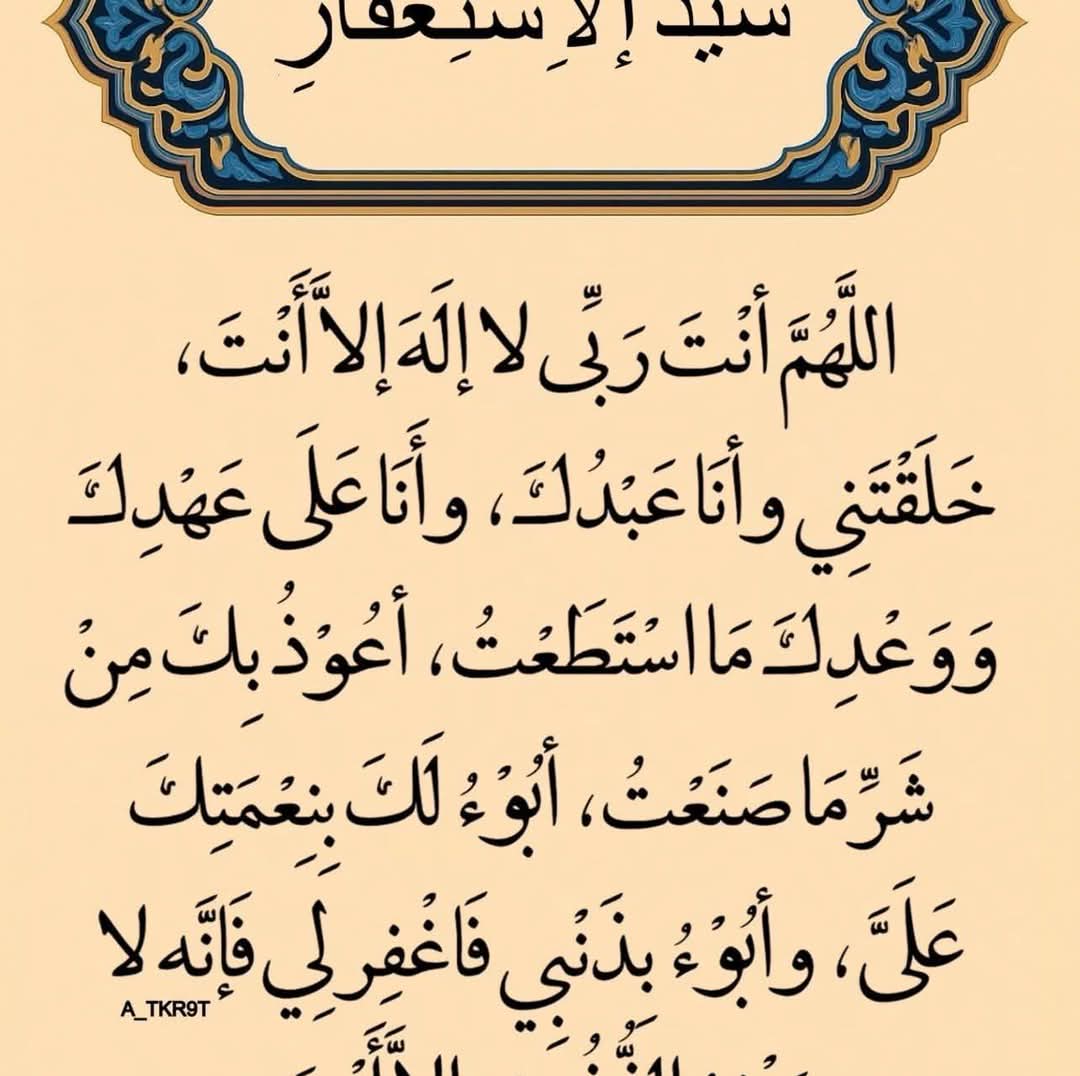 سيد الإستغفار
اللَّهُمَّ أنْتَ رَبِّى لا إلَهَ إلاَّ أَنْتَ،
خَلَقْتَنِي وأنَا عَبْدُكَ، وأَنَا عَلَى عَهْدِكَ
وَوَعْدِكَ مَا اسْتَطَعْتُ، أعُوْذُ بِكَ مِنْ
شَرِّ مَا صَنَعْتُ، أبُوْءُ لَكَ بِنِعْمَتِكَ
عَلَىَّ، وأبُوْءُ بِذَنْبِي فَاغْفِر لِي فَإنَّه لا
A_TKR9T